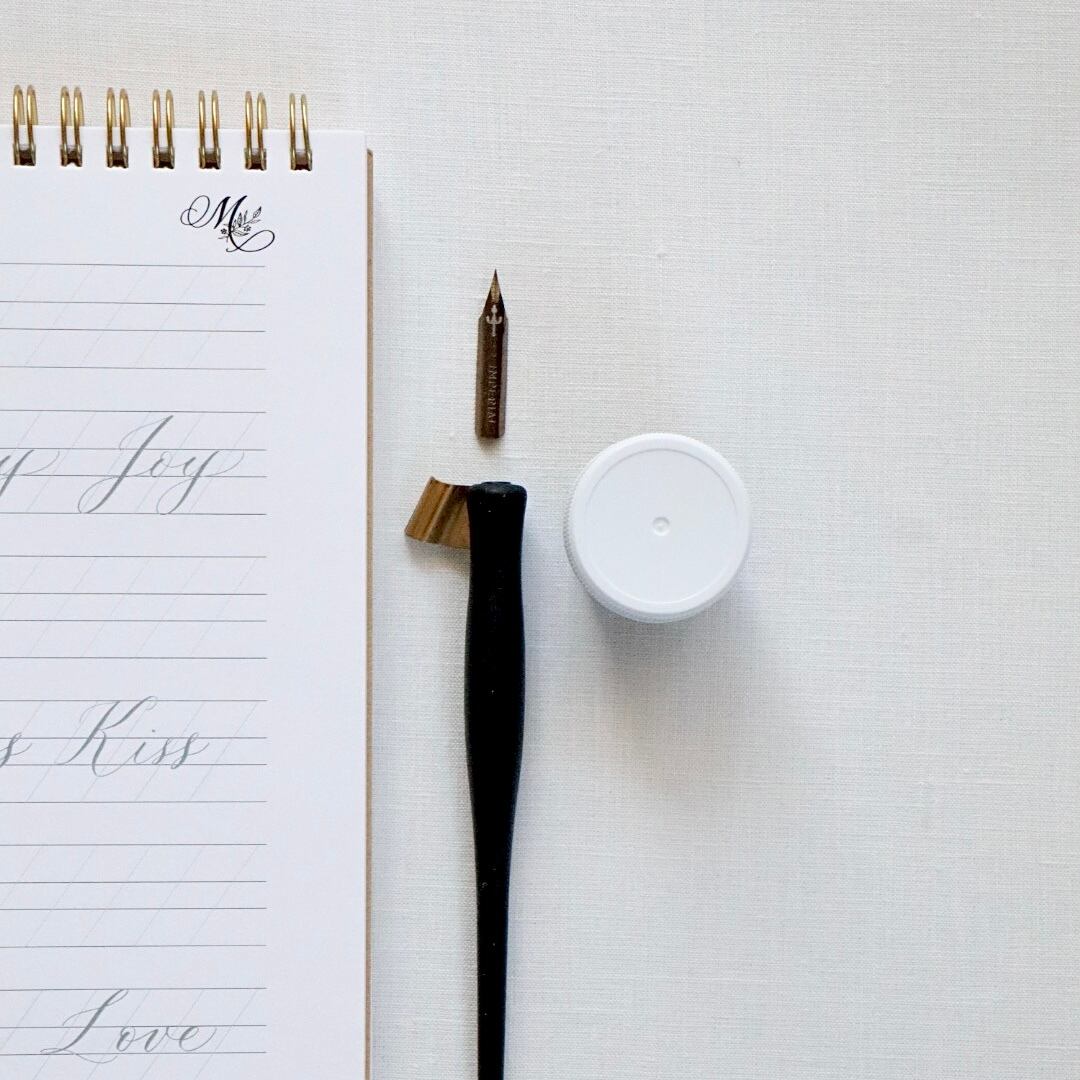 M
y Joy
IMPERIAL
s Kiss
Love